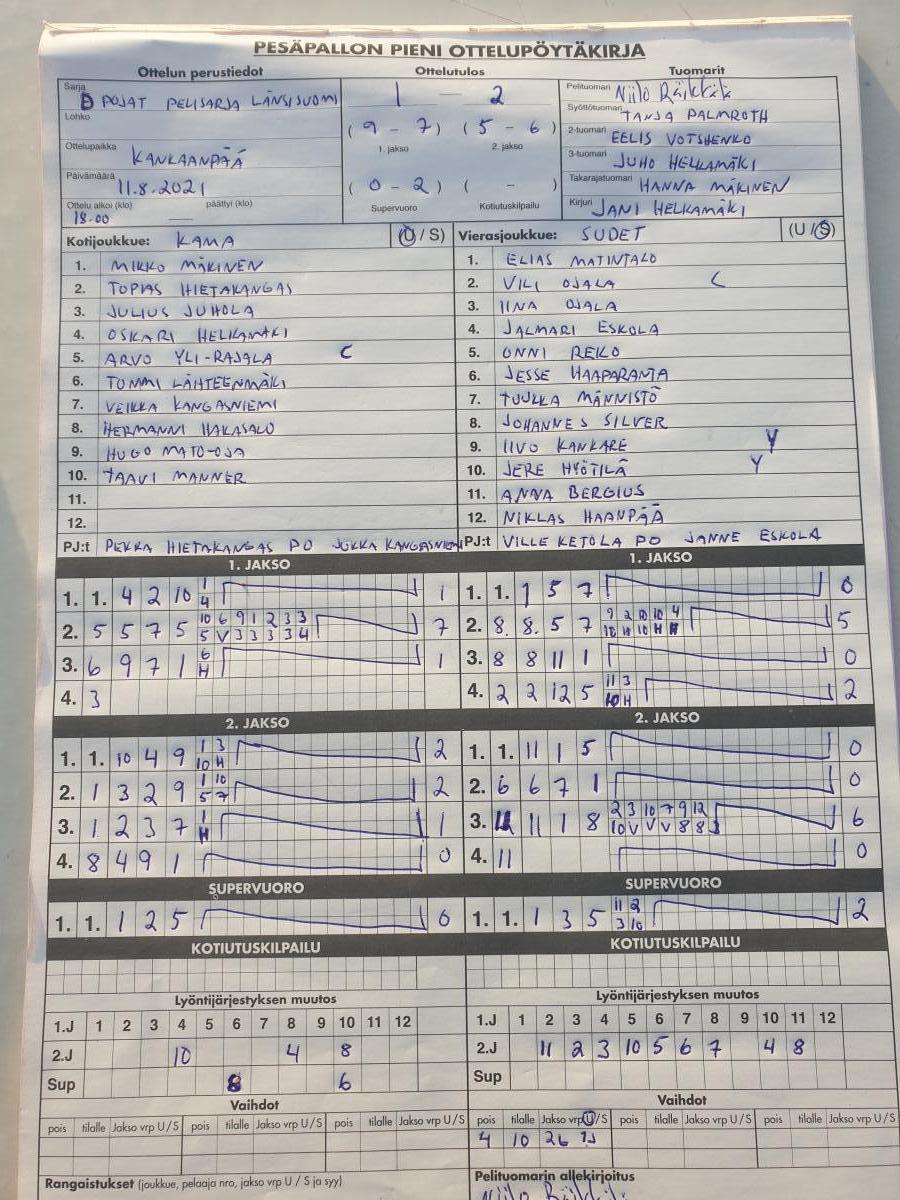 PESÄPALLON PIENI OTTELUPÖYTÄKIRJA
Ottelun perustiedot Ottelutulos Tuomarit
Sarja D POJAT PELISARJA LÄNSISUOMI
Lohko
Ottelupaikka KANKAANPÄÄ
Päivämäärä 11.8.2021
Ottelu alkoi (klo) päättyi (klo)
18.00 —
1 — 2
(9 - 7) (5 - 6)
1. jakso 2. jakso
(0 - 2) ( - )
Supervuoro Kotiutuskilpailu
Pelituomari Niilo Räikkälä
Syöttötuomari TANJA PALMROTH
2-tuomari EELIS VOTSHENKO
3-tuomari JUHO HELKAMÄKI
Takarajatuomari HANNA MÄKINEN
Kirjuri JANI HELKAMÄKI
Kotijoukkue: KAMA (U / S)
1. MIKKO MÄKINEN
2. TOPIAS HIETAKANGAS
3. JULIUS JUHOLA
4. OSKARI HELKAMÄKI
5. ARVO YLI-RAJALA C
6. TOMMI LÄHTEENMÄKI
7. VEIKKA KANGASNIEMI
8. HERMANNI HAKASALO
9. HUGO MATO-OJA
10. TAAVI MANNER
11.
12.
PJ:t PEKKA HIETAKANGAS PO JUKKA KANGASNIEMI
Vierasjoukkue: SUDET (U / S)
1. ELIAS MATINTALO
2. VILI OJALA C
3. IINA OJALA
4. JALMARI ESKOLA
5. ONNI REKO
6. JESSE HAAPARANTA
7. TUULKA MÄNNISTÖ
8. JOHANNES SILVER
9. IIVO KANKARE Y
10. JERE HYÖTILÄ Y
11. ANNA BERGIUS
12. NIKLAS HAANPÄÄ
PJ:t VILLE KETOLA PO JANNE ESKOLA
1. JAKSO
1. 1. 4 2 10 1 1
4
2. 5 5 7 5 10 6 9 1 2 3 3 7
5 V 3 3 3 3 4
3. 6 9 7 1 6 1
H
4. 3
2. JAKSO
1. 1. 10 4 9 1 3 2
10 H
2. 1 3 2 9 1 10 2
5 7
3. 1 2 3 7 1 1
H
4. 8 4 9 1 0
SUPERVUORO
1. 1. 1 2 5 0
KOTIUTUSKILPAILU
Lyöntijärjestyksen muutos
1.J 1 2 3 4 5 6 7 8 9 10 11 12
2.J 10 4 8
Sup 8 6
Vaihdot
pois tilalle Jakso vrp U / S pois tilalle Jakso vrp U / S pois tilalle Jakso vrp U / S
Rangaistukset (joukkue, pelaaja nro, jakso vrp U / S ja syy)
1. JAKSO
1. 1. 1 5 7 0
2. 8 8 5 7 9 2 10 10 4 5
10 10 10 H H
3. 8 8 11 1 0
4. 2 2 12 5 11 3 2
10 H
2. JAKSO
1. 1. 11 1 5 0
2. 6 6 7 1 0
3. 11 1 8 2 3 10 7 9 12 6
10 V V V 8 8
4. 11 0
SUPERVUORO
1. 1. 1 3 5 11 2 2
3 10
KOTIUTUSKILPAILU
Lyöntijärjestyksen muutos
1.J 1 2 3 4 5 6 7 8 9 10 11 12
2.J 11 2 3 10 5 6 7 4 8
Sup
Vaihdot
pois tilalle Jakso vrp U / S pois tilalle Jakso vrp U / S pois tilalle Jakso vrp U / S
4 10
Pelituomarin allekirjoitus